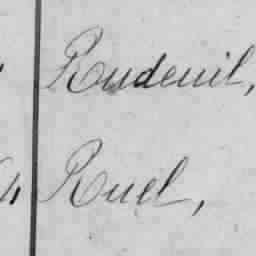 Rudenil,
Ruel,